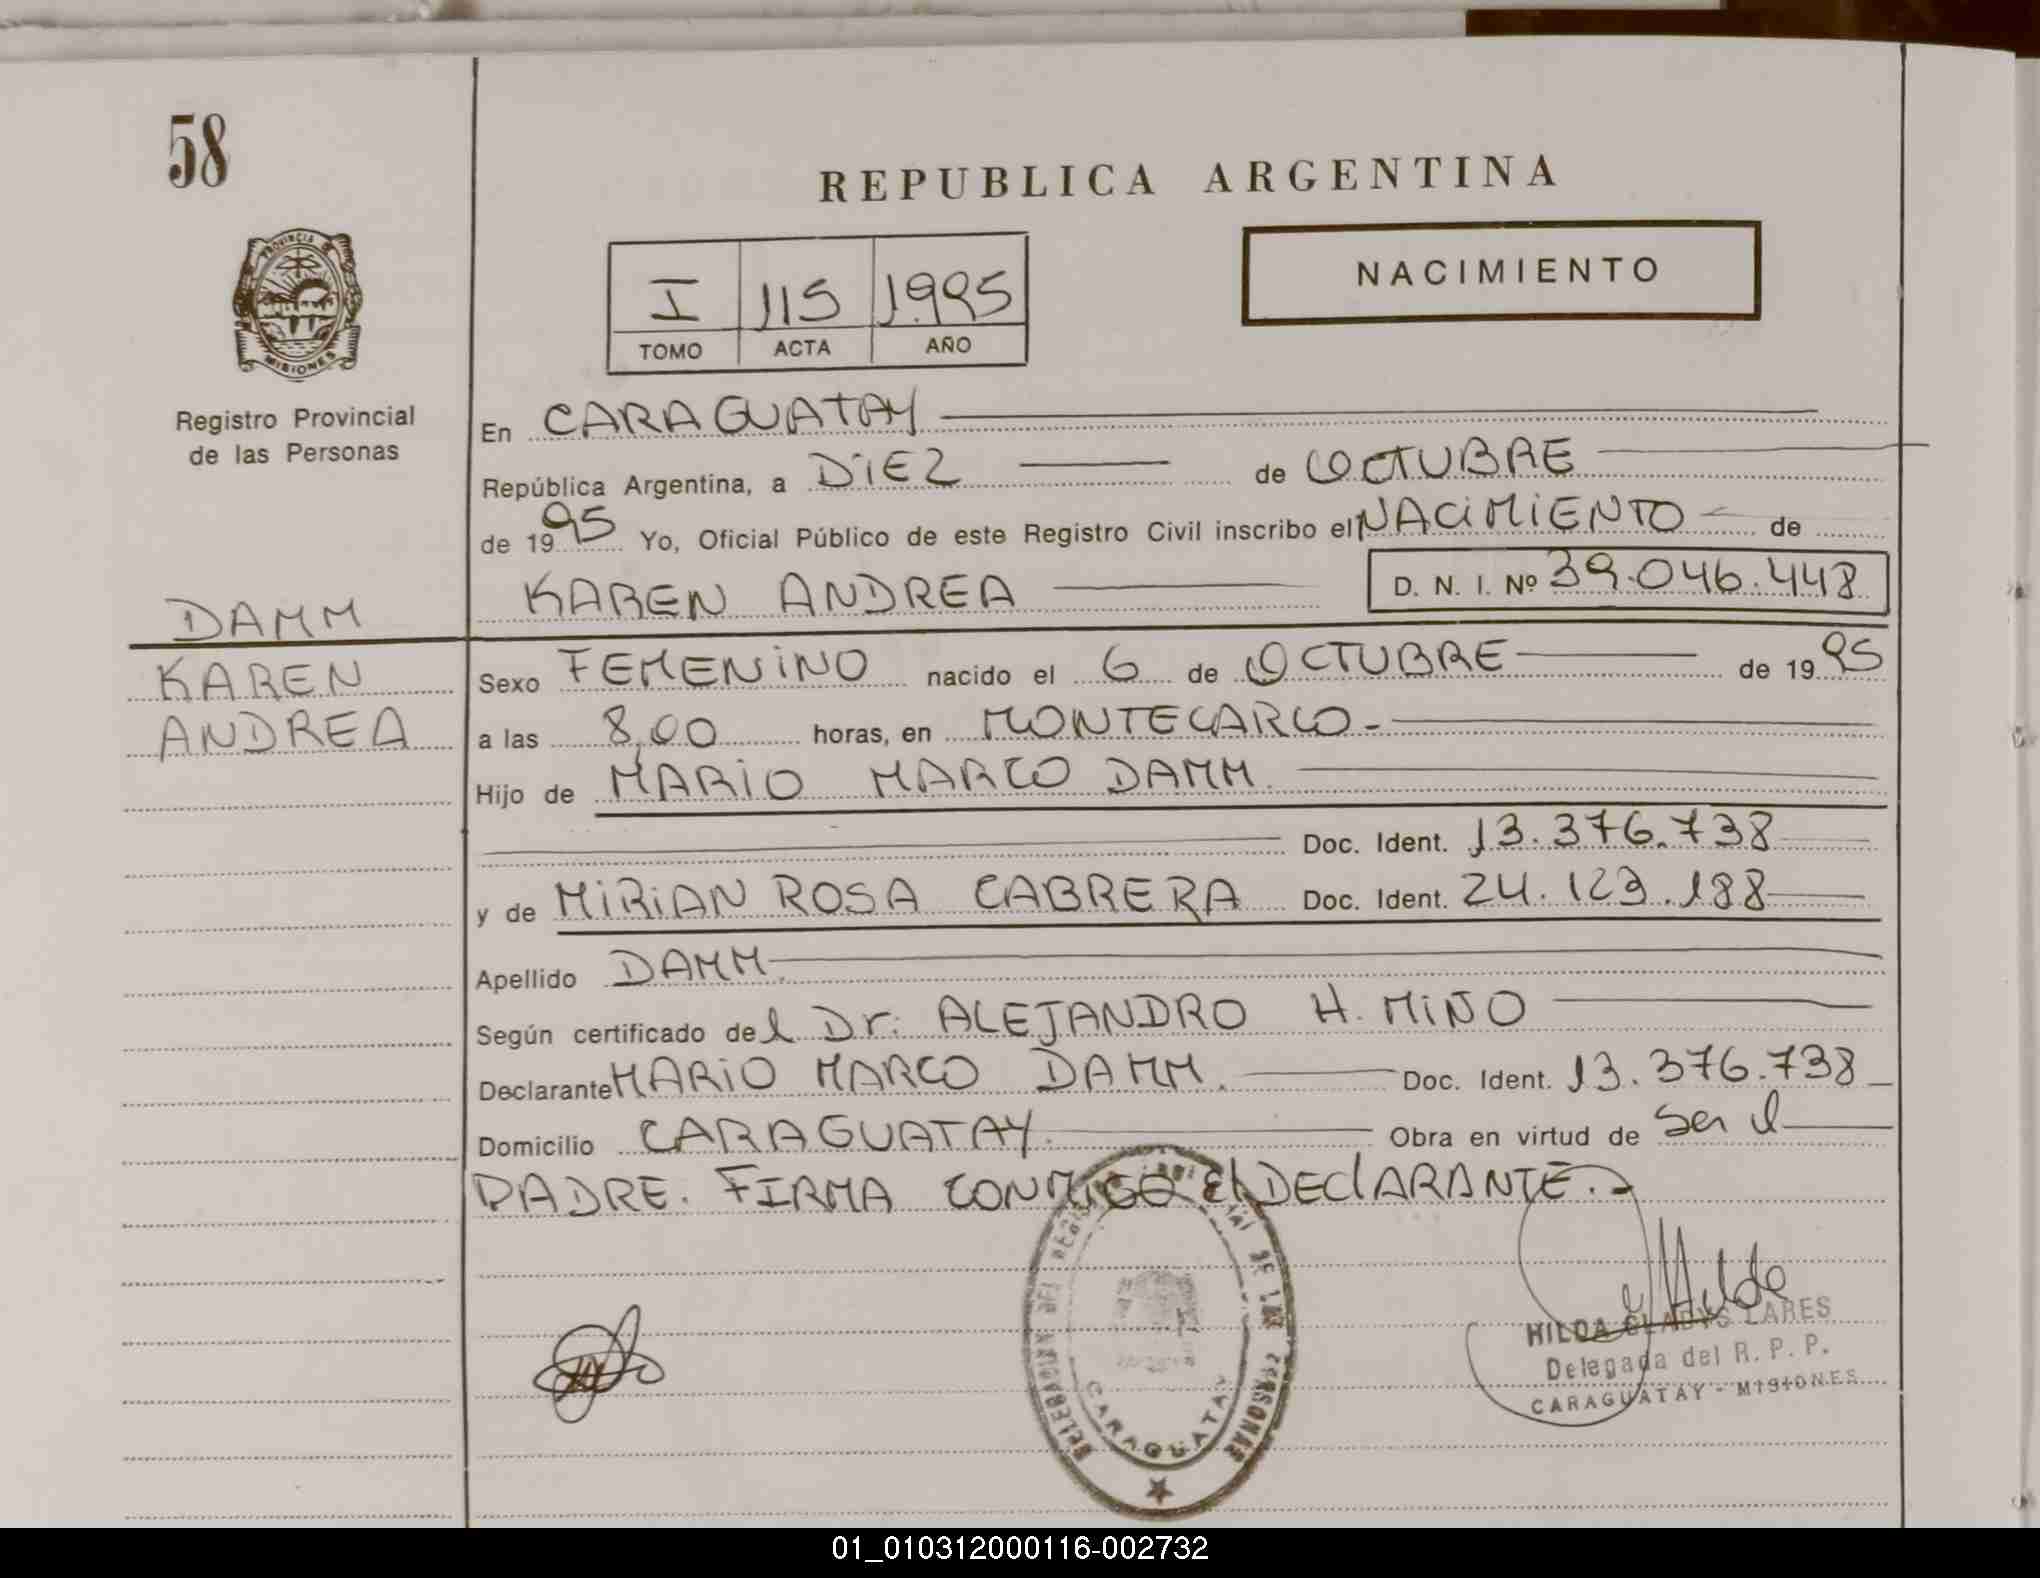 58
REPUBLICA ARGENTINA
PROVINCIA DE
MISIONES
I 115 1.995
TOMO ACTA AÑO
NACIMIENTO
Registro Provincial
de las Personas
En CARAGUATAY
República Argentina, a DIEZ de OCTUBRE
de 1995 Yo, Oficial Público de este Registro Civil inscribo el NACIMIENTO de
KAREN ANDREA D. N. I. Nº 39.046.448
DAMM
KAREN
ANDREA
Sexo FEMENINO nacido el 6 de OCTUBRE de 1995
a las 8,00 horas, en MONTECARLO.-
Hijo de MARIO MARCO DAMM.
Doc. Ident. 13.376.738
y de MIRIAN ROSA CABRERA Doc. Ident. 24.123.188
Apellido DAMM.
Según certificado del Dr. ALEJANDRO H. MINO
Declarante MARIO MARCO DAMM. Doc. Ident. 13.376.738
Domicilio CARAGUATAY. Obra en virtud de ser el
PADRE. FIRMA CONMIGO El DEClARANTE.
DELEGACION DEL REGISTRO PROVINCIAL DE LAS PERSONAS
CARAGUATAY
Hilda
HILDA GLADYS LARES
Delegada del R. P. P.
CARAGUATAY - MISIONES
01_010312000116-002732